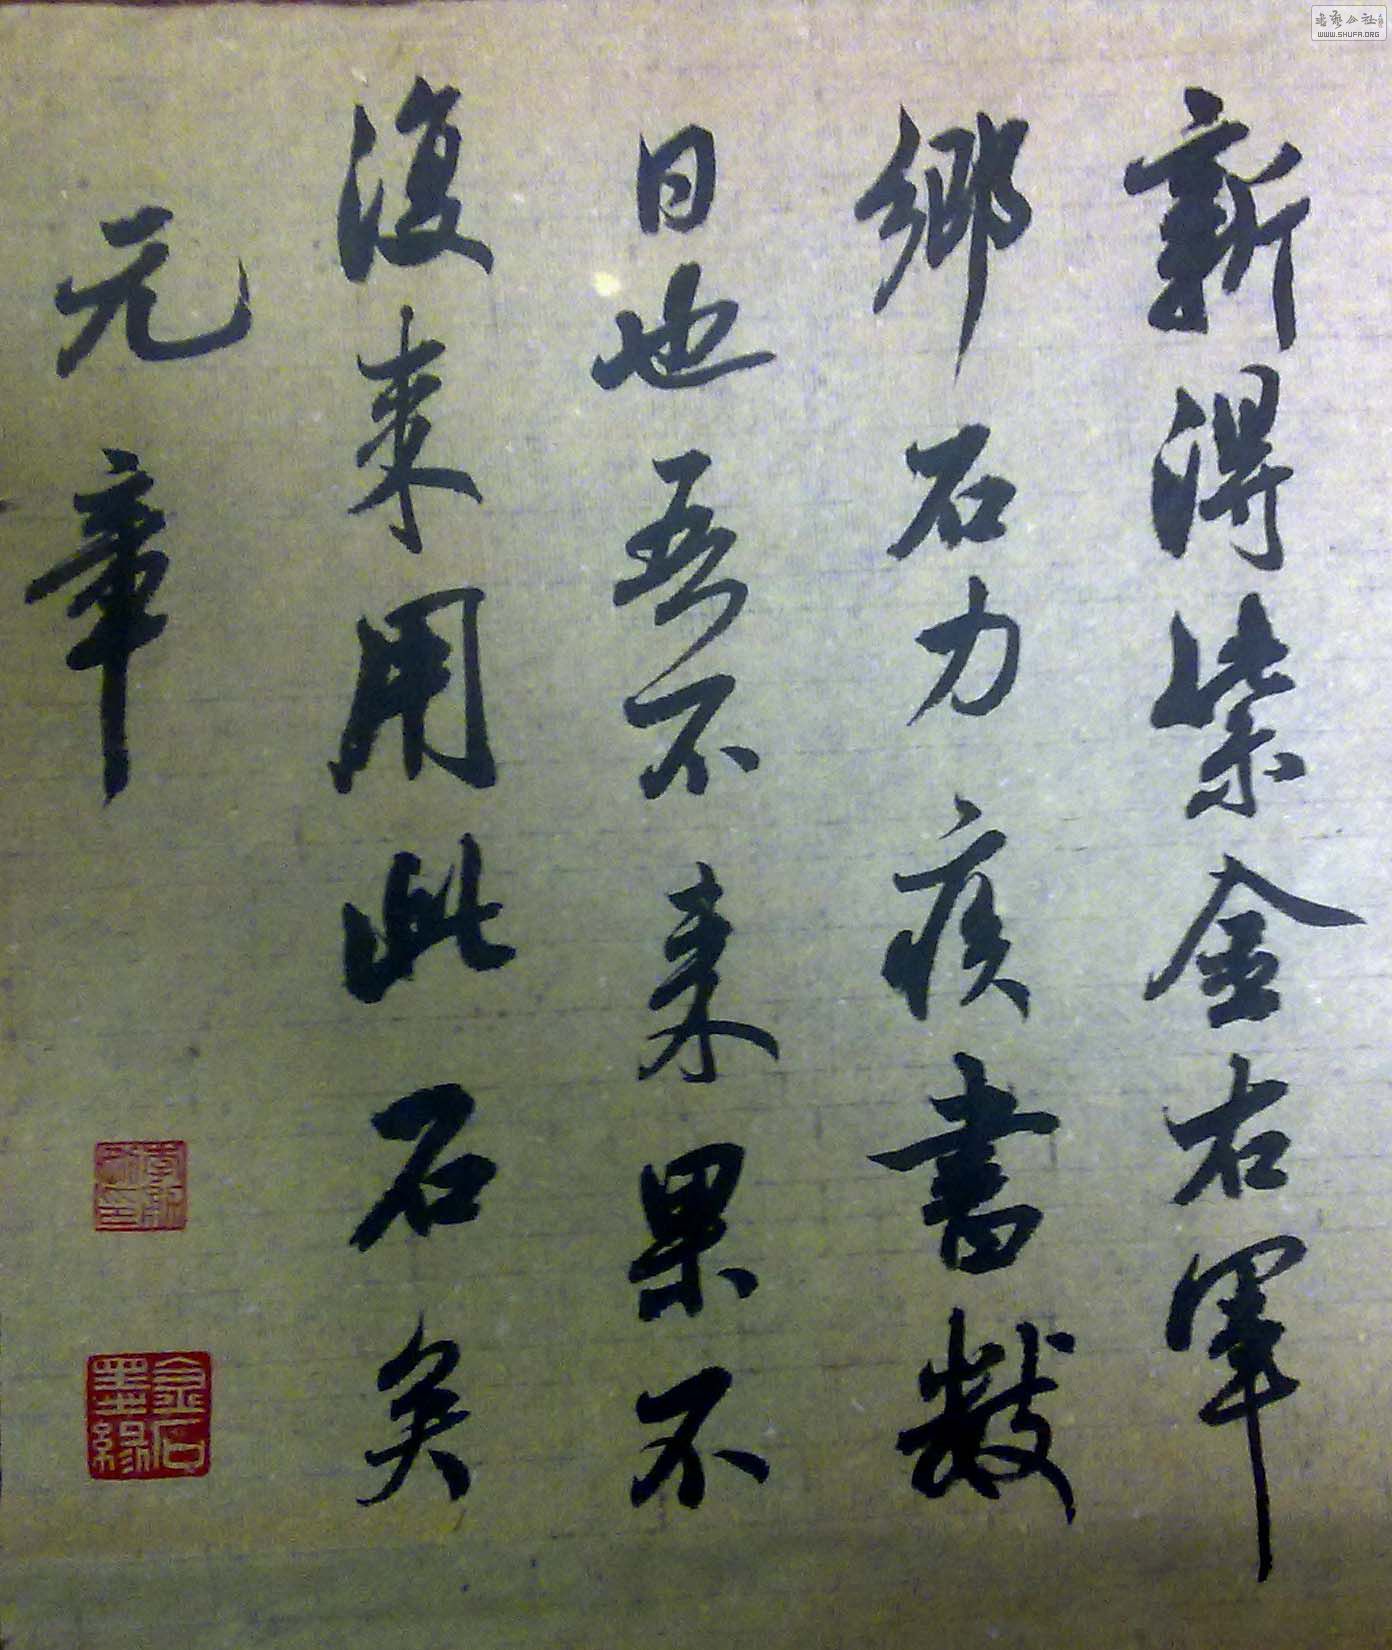 新得紫金右軍
鄉石力疾書數
日也吾不来果不
復来用此石矣
元章
金石
墨緣
WWW.SHUFA.ORG